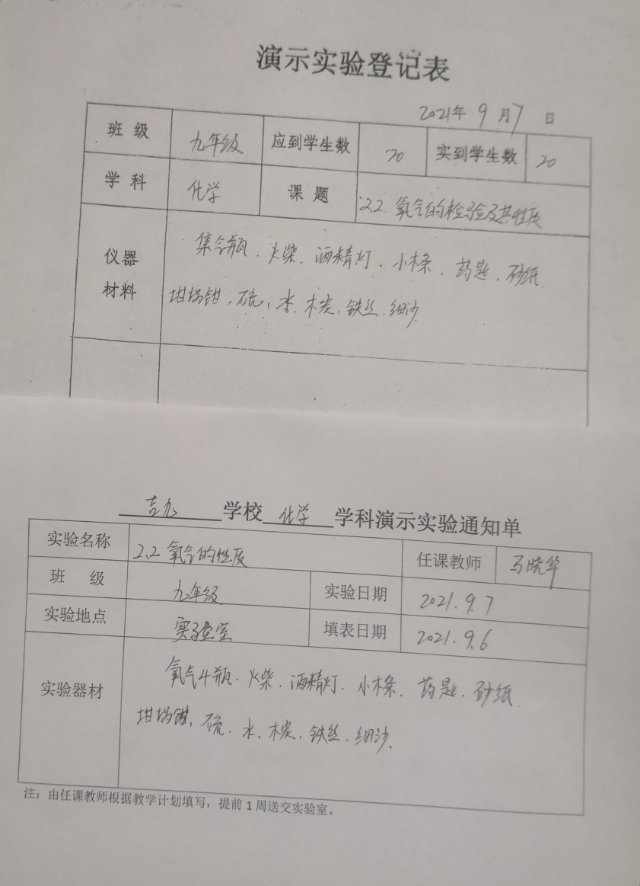 演示实验登记表
2021年 9月7日
班 级 九年级 应到学生数 20 实到学生数 20
学 科 化学 课 题 2.2 氧气的检验及其性质
仪器
材料
集气瓶、火柴、酒精灯、小木条、药匙、砂纸
坩埚钳、硫、水、木炭、铁丝、细沙
学校 化学 学科演示实验通知单
实验名称 2.2 氧气的性质 任课教师 马晓华
班 级 九年级 实验日期 2021.9.7
实验地点 实验室 填表日期 2021.9.6
实验器材
氧气4瓶、火柴、酒精灯、小木条、药匙、砂纸
坩埚钳、硫、水、木炭、铁丝、细沙
注：由任课教师根据教学计划填写，提前1周送交实验室。